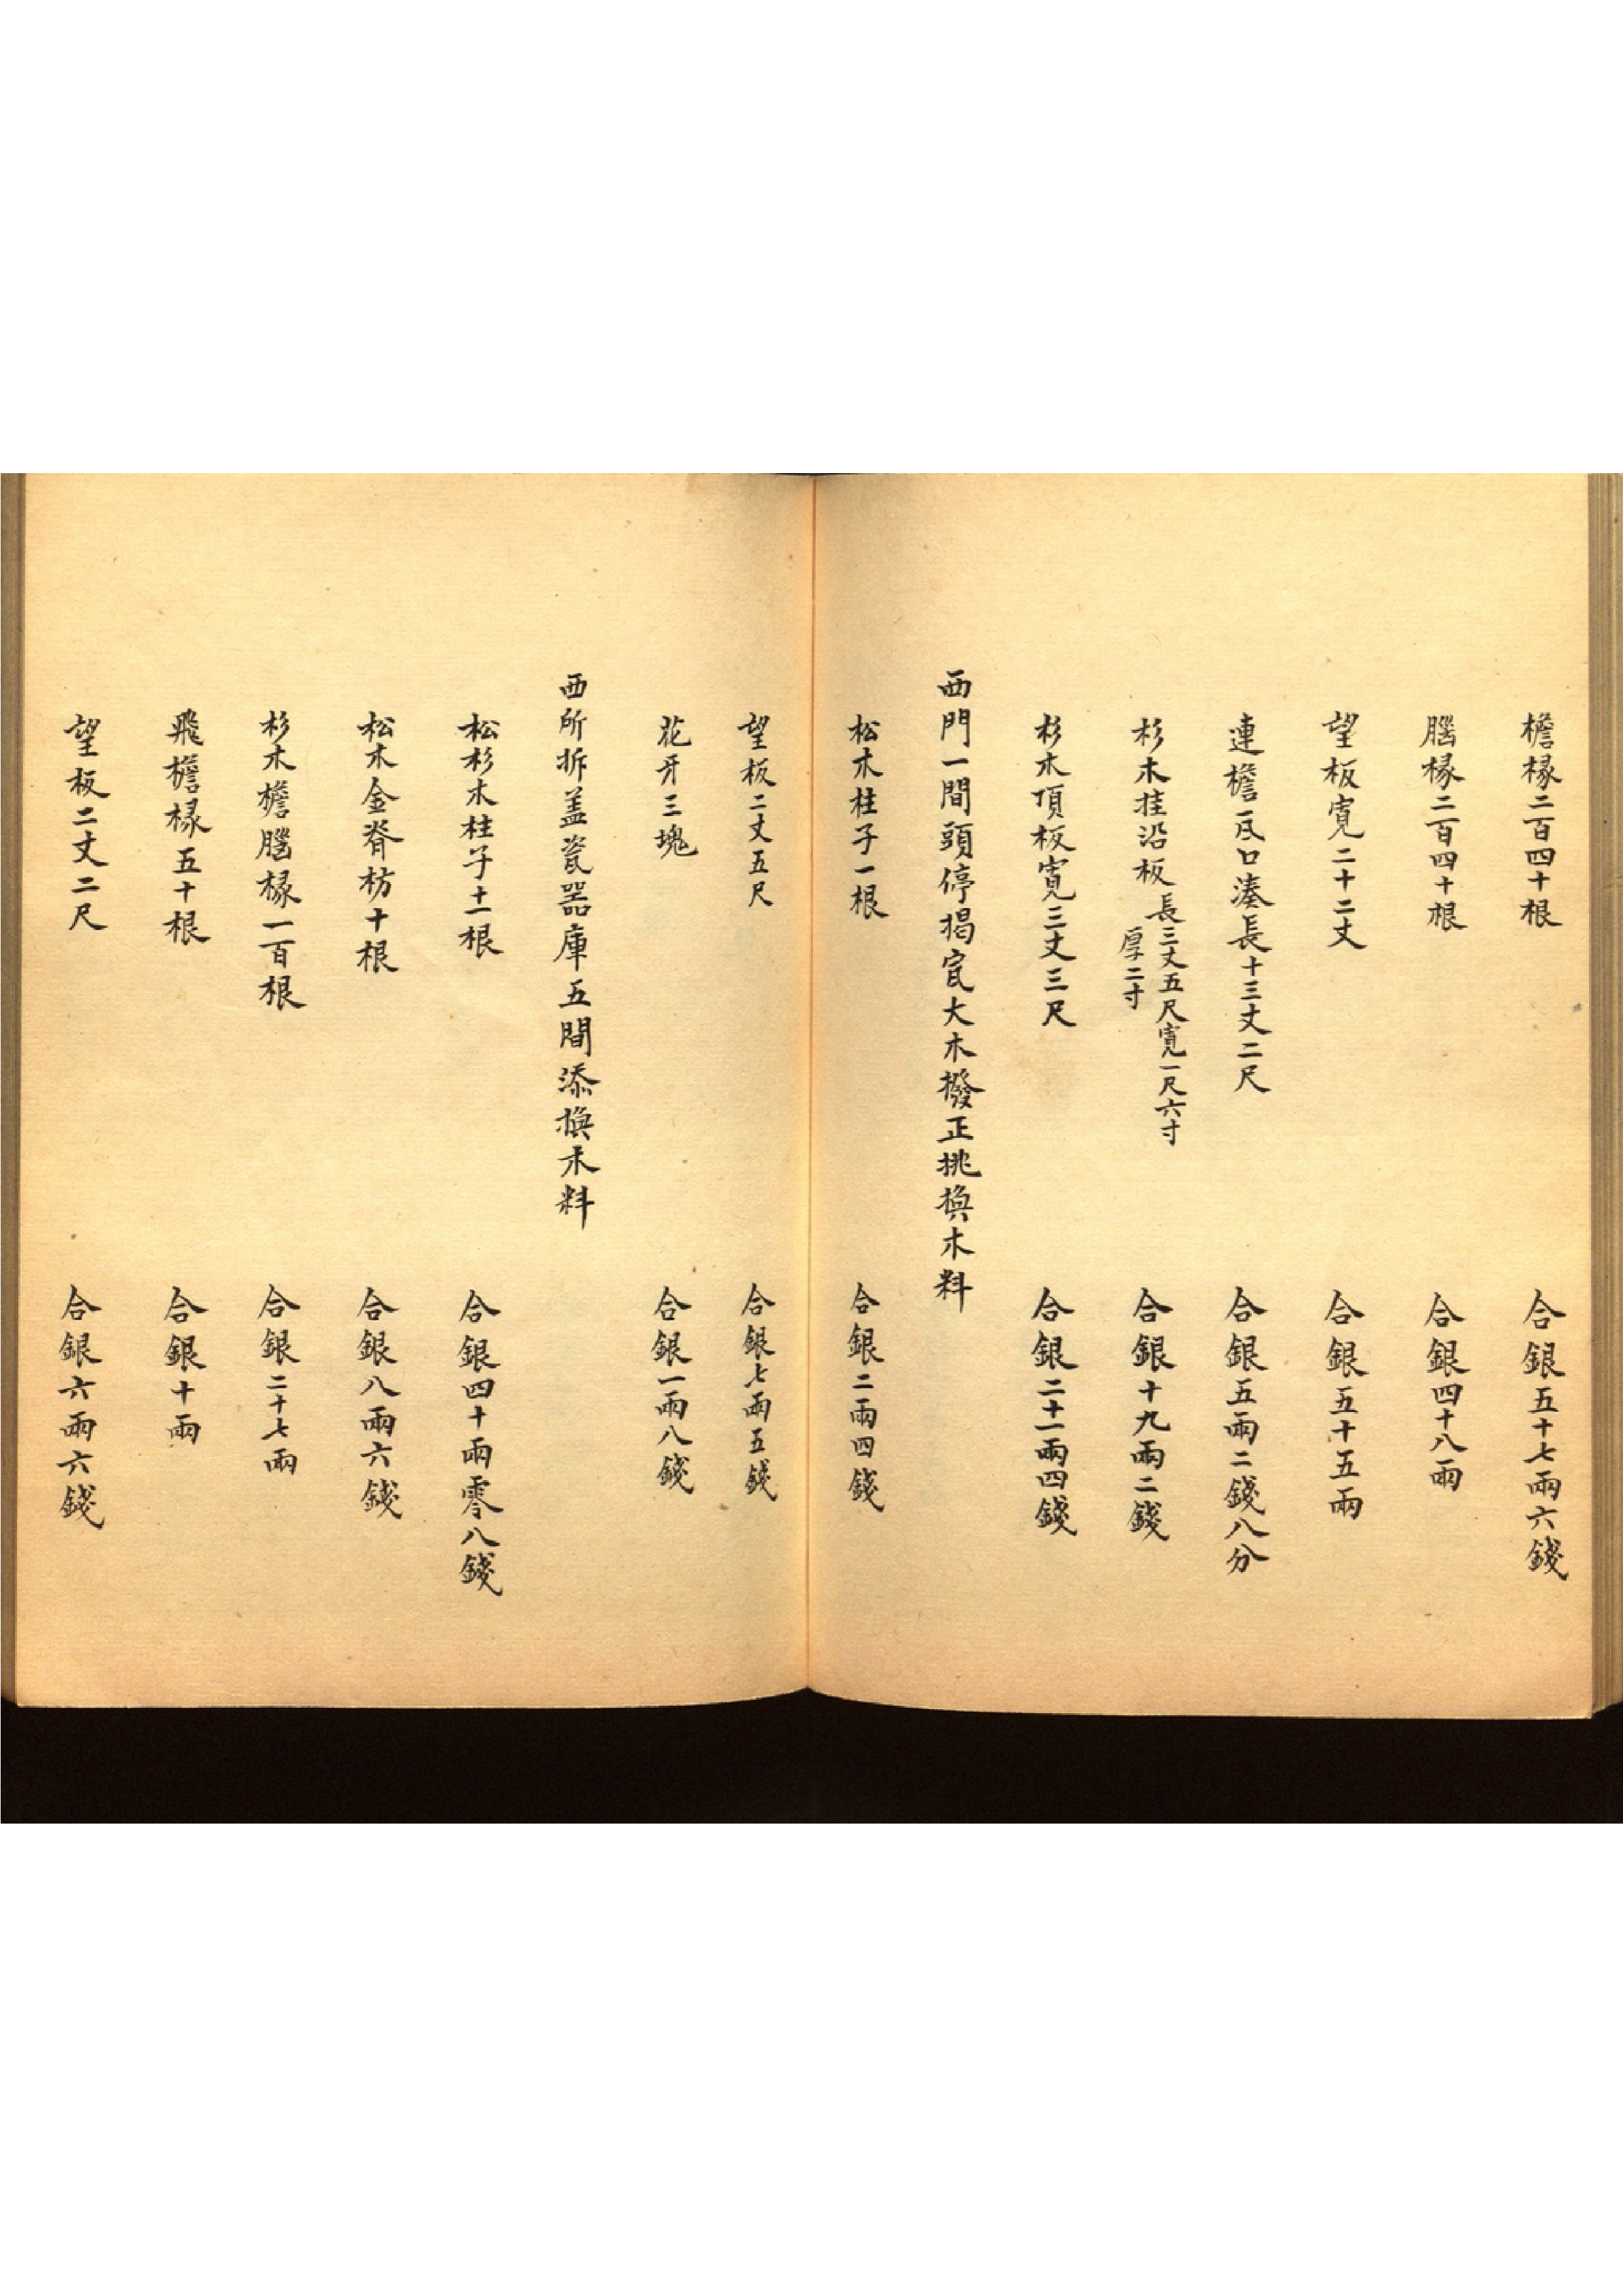 檐椽二百四十根 合銀五十七兩六錢
腦椽二百四十根 合銀四十八兩
望板寬二十二丈 合銀五十五兩
連檐瓦口湊長十三丈二尺 合銀五兩二錢八分
杉木挂沿板長三丈五尺寬一尺六寸厚二寸 合銀十九兩二錢
杉木頂板寬三丈三尺 合銀二十一兩四錢
西門一間頭停揭瓦大木撥正挑換木料
松木柱子一根 合銀二兩四錢
望板二丈五尺 合銀七兩五錢
花牙三塊 合銀一兩八錢
西所拆盖瓷器庫五間添換木料
松杉木柱子十一根 合銀四十兩零八錢
松木金脊枋十根 合銀八兩六錢
杉木檐腦椽一百根 合銀二十七兩
飛檐椽五十根 合銀十兩
望板二丈二尺 合銀六兩六錢